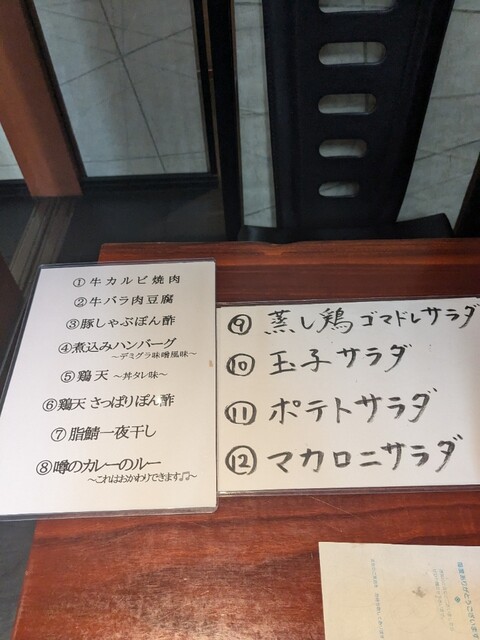 ①牛カルビ焼肉
②牛バラ肉豆腐
③豚しゃぶぽん酢
④煮込みハンバーグ
～デミグラ味噌風味～
⑤鶏天 ～丼タレ味～
⑥鶏天 さっぱりぽん酢
⑦脂鯖一夜干し
⑧噂のカレーのルー
～これはおかわりできます♫～
⑨蒸し鶏ゴマドレサラダ
⑩玉子サラダ
⑪ポテトサラダ
⑫マカロニサラダ